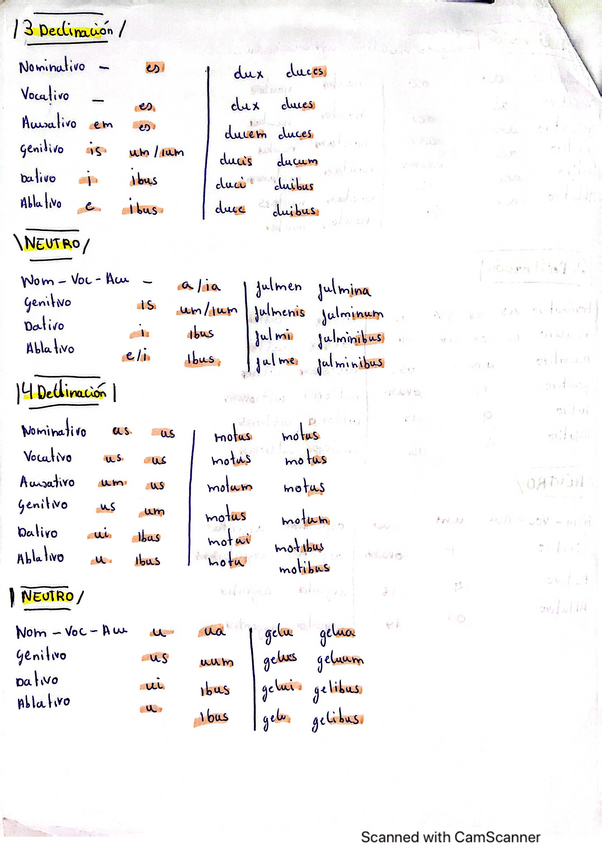 3 Declinación
Nominativo - es dux duces
Vocativo - es dux duces
Acusativo em es ducem duces
Genitivo is um/ium ducis ducum
Dativo i ibus duci duibus
Ablativo e ibus duce duibus
NEUTRO
Nom - Voc - Acu - a/ia fulmen fulmina
Genitivo is um/ium fulmenis fulminum
Dativo i ibus fulmi fulminibus
Ablativo e/i ibus fulme fulminibus
4 Declinación
Nominativo us us motus motus
Vocativo us us motus motus
Acusativo um us motum motus
Genitivo us um motus motum
Dativo ui ibus motui motibus
Ablativo u ibus motu motibus
NEUTRO
Nom - Voc - Acu u ua gelu gelua
Genitivo us uum gelus geluum
Dativo ui ibus gelui gelibus
Ablativo u ibus gelu gelibus
Scanned with CamScanner